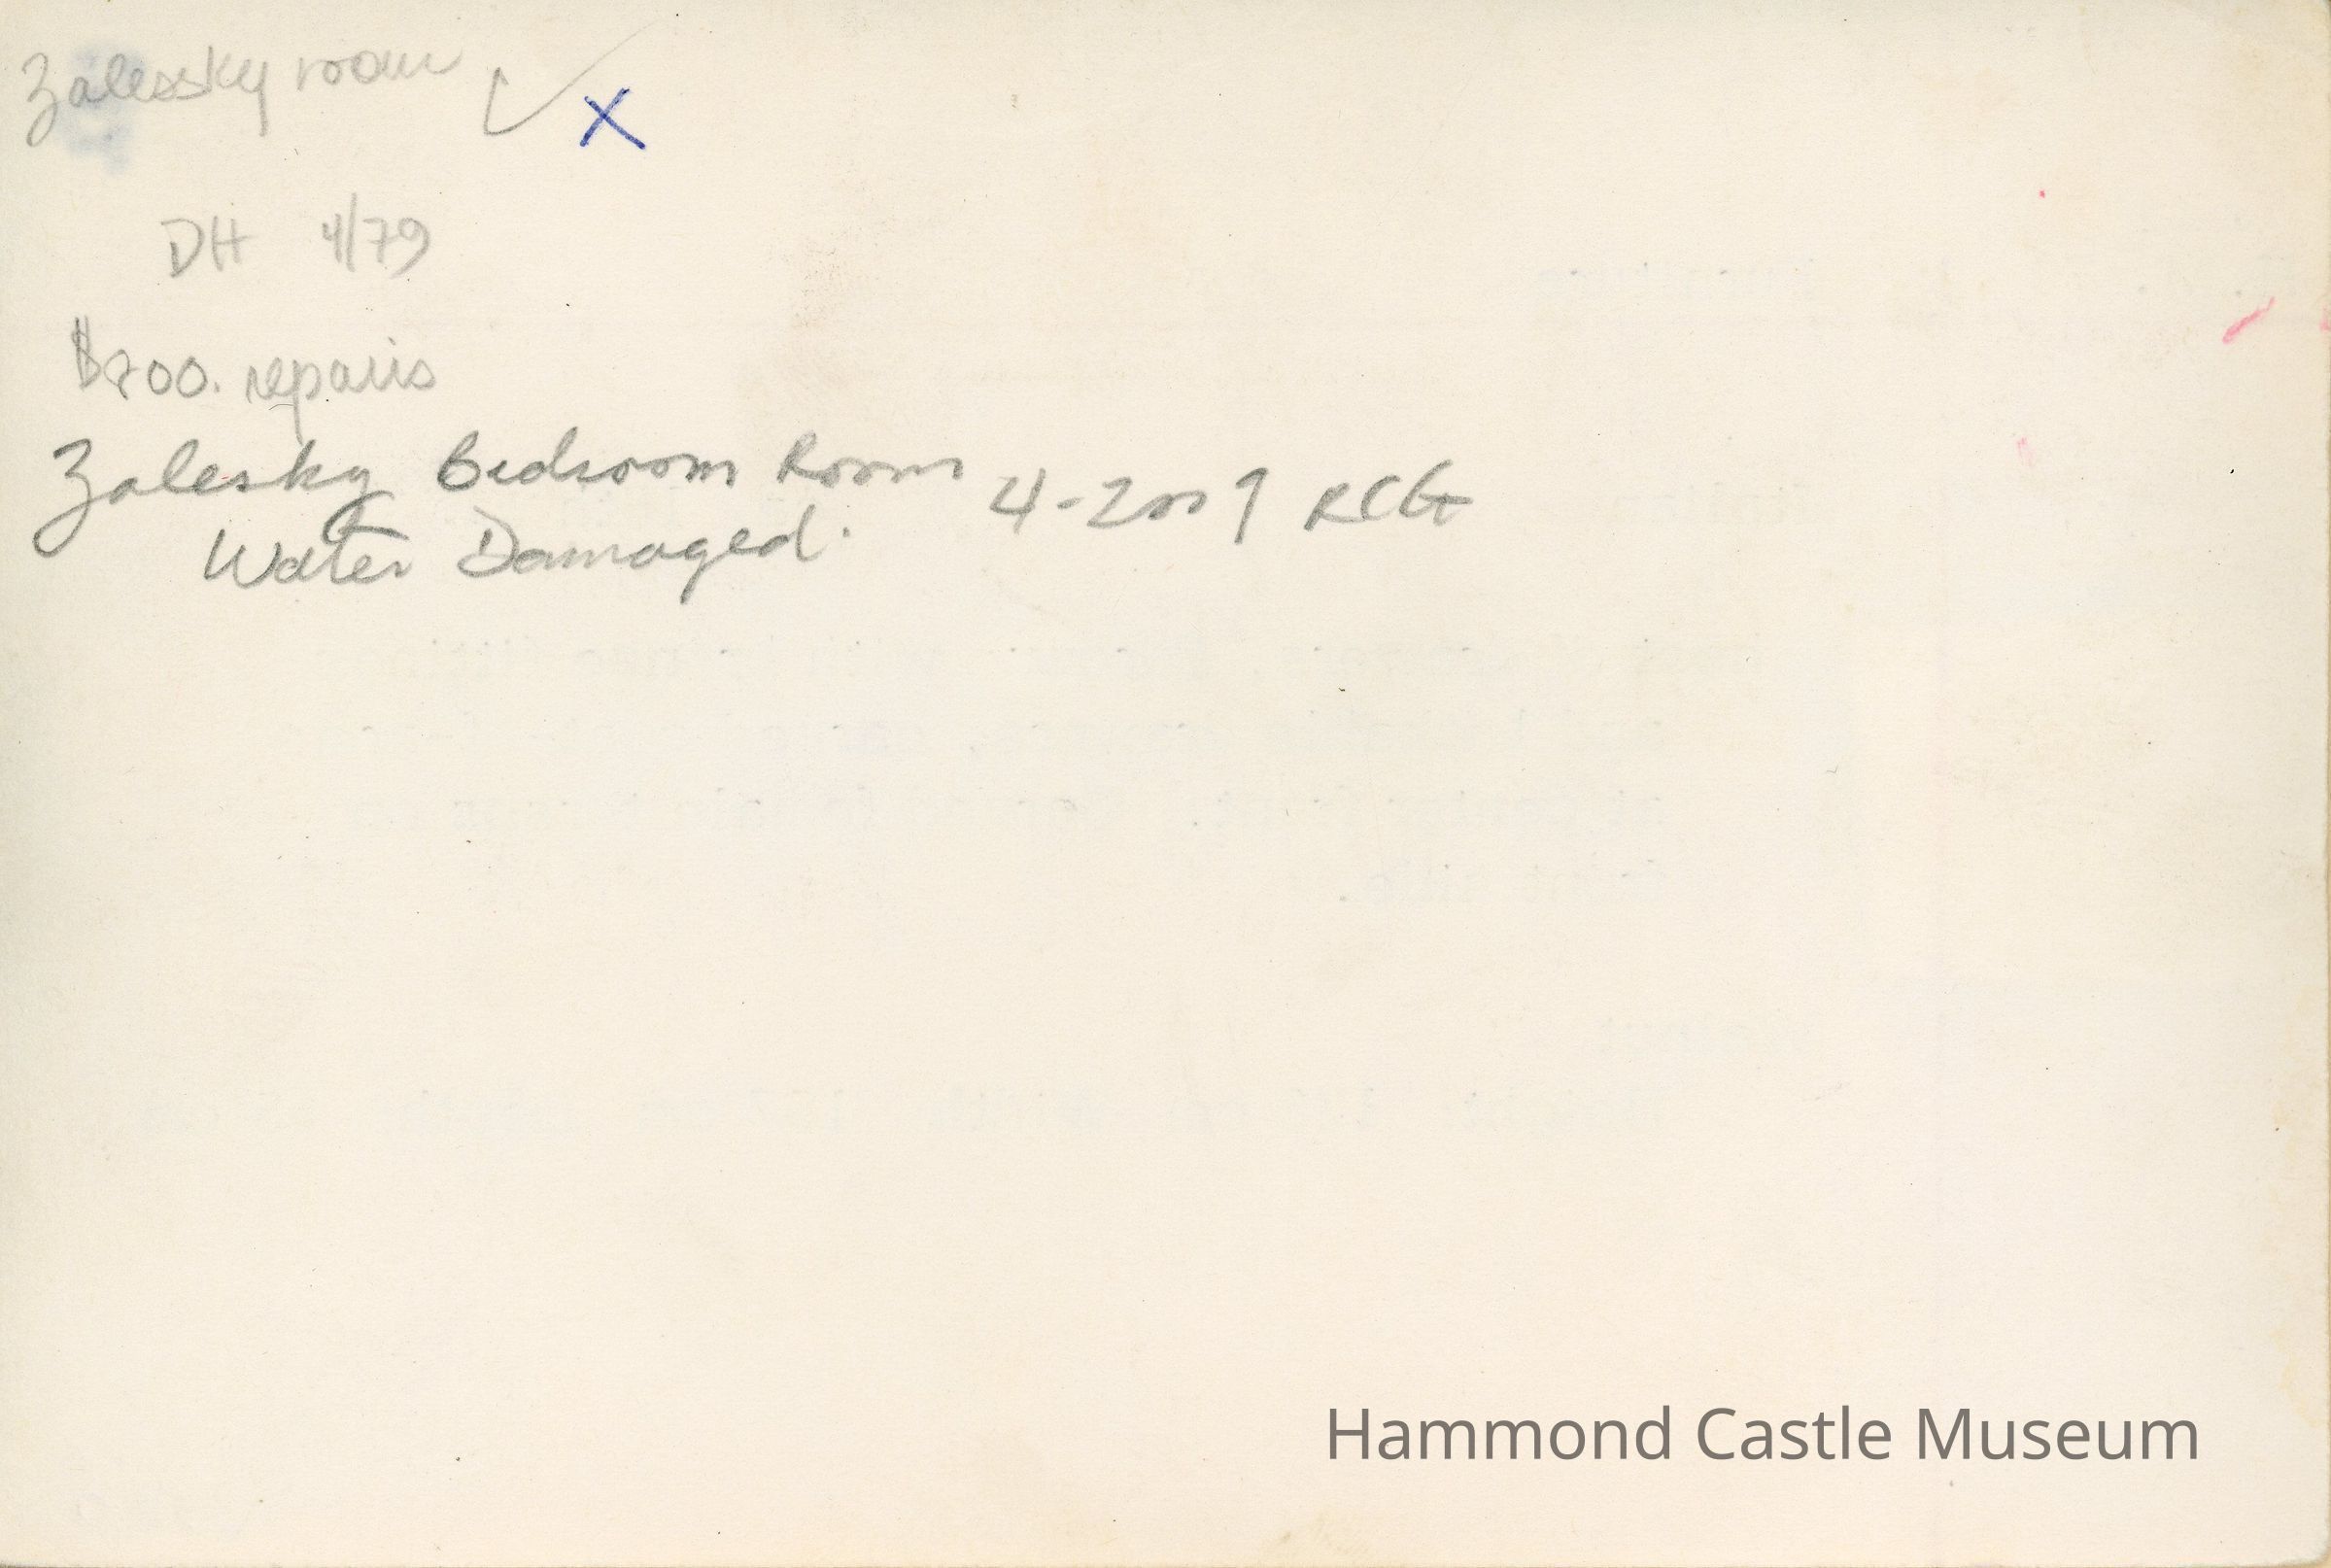 Zalessky room ✓ X
DH 4/79
$700. repairs
Zalesky Bedroom Room 4-2009 RCG
Water Damaged.
Hammond Castle Museum